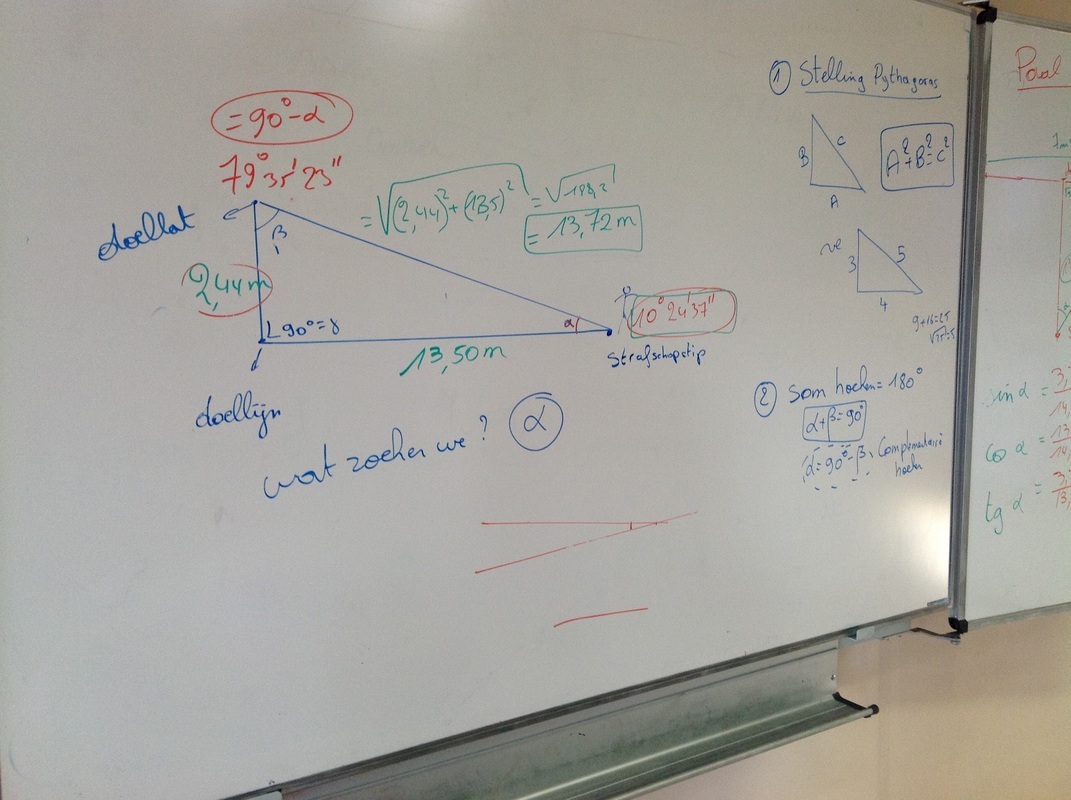 = 90° - α
79° 35' 23"
doellat
β
2,44 m
= √(2,44)² + (13,5)² = √188,2
= 13,72 m
90° = γ
α
10° 24' 37"
13,50 m
Strafschopstip
doellijn
wat zoeken we? α
① Stelling Pythagoras
B
C
A
A² + B² = C²
3
5
4
9+16=25
√25=5
② Som hoeken = 180°
α + β = 90°
α = 90° - β
Complementaire
hoeken
sin α =
cos α =
tg α =